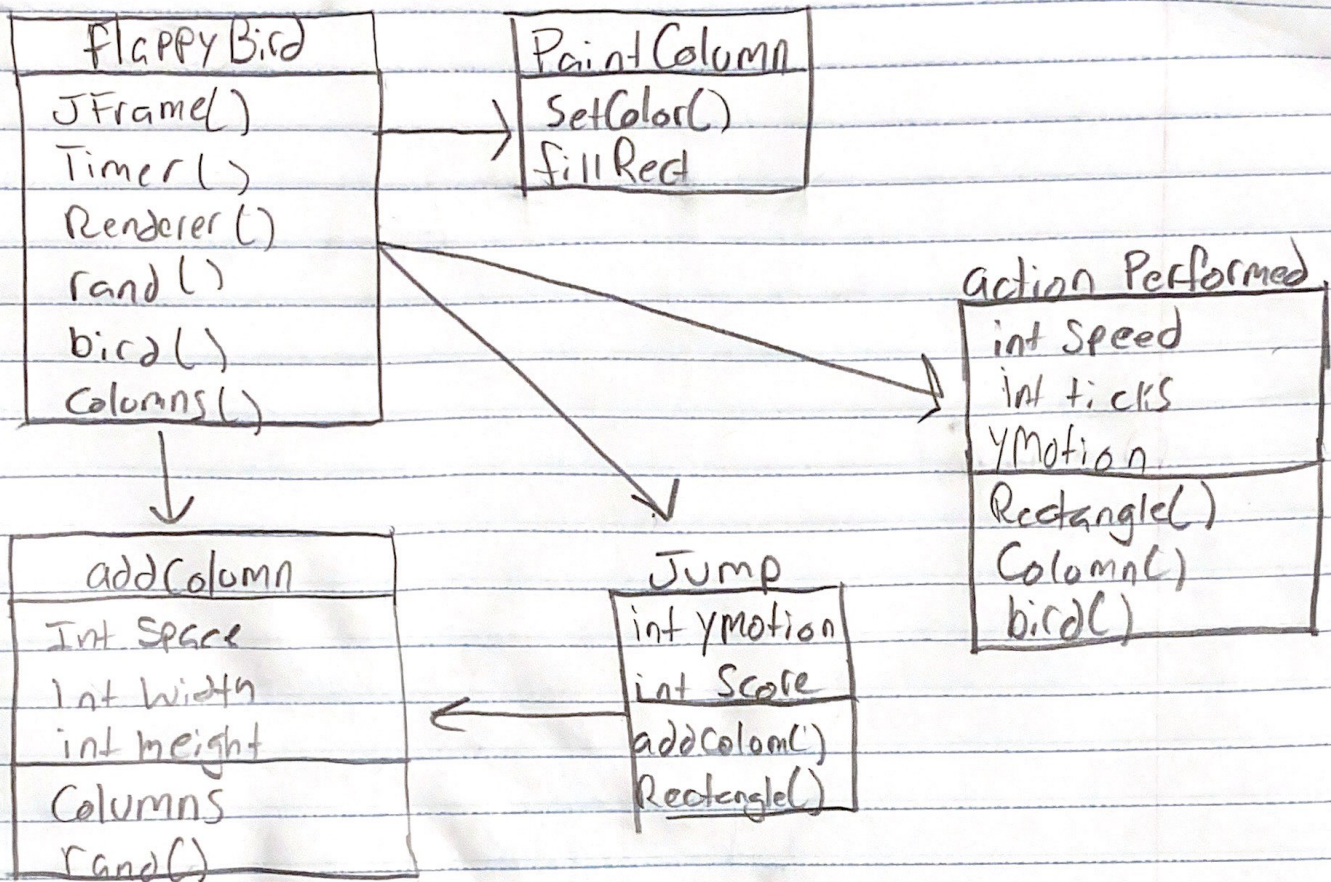 FlappyBird
JFrame()
Timer()
Renderer()
rand()
bird()
Colomns()
PaintColumn
SetColor()
fillRect
action Performed
int Speed
int ticks
YMotion
Rectangle()
Colomn()
bird()
addColumn
Int Space
Int Width
int height
Columns
rand()
Jump
int ymotion
int Score
addColom()
Rectengle()